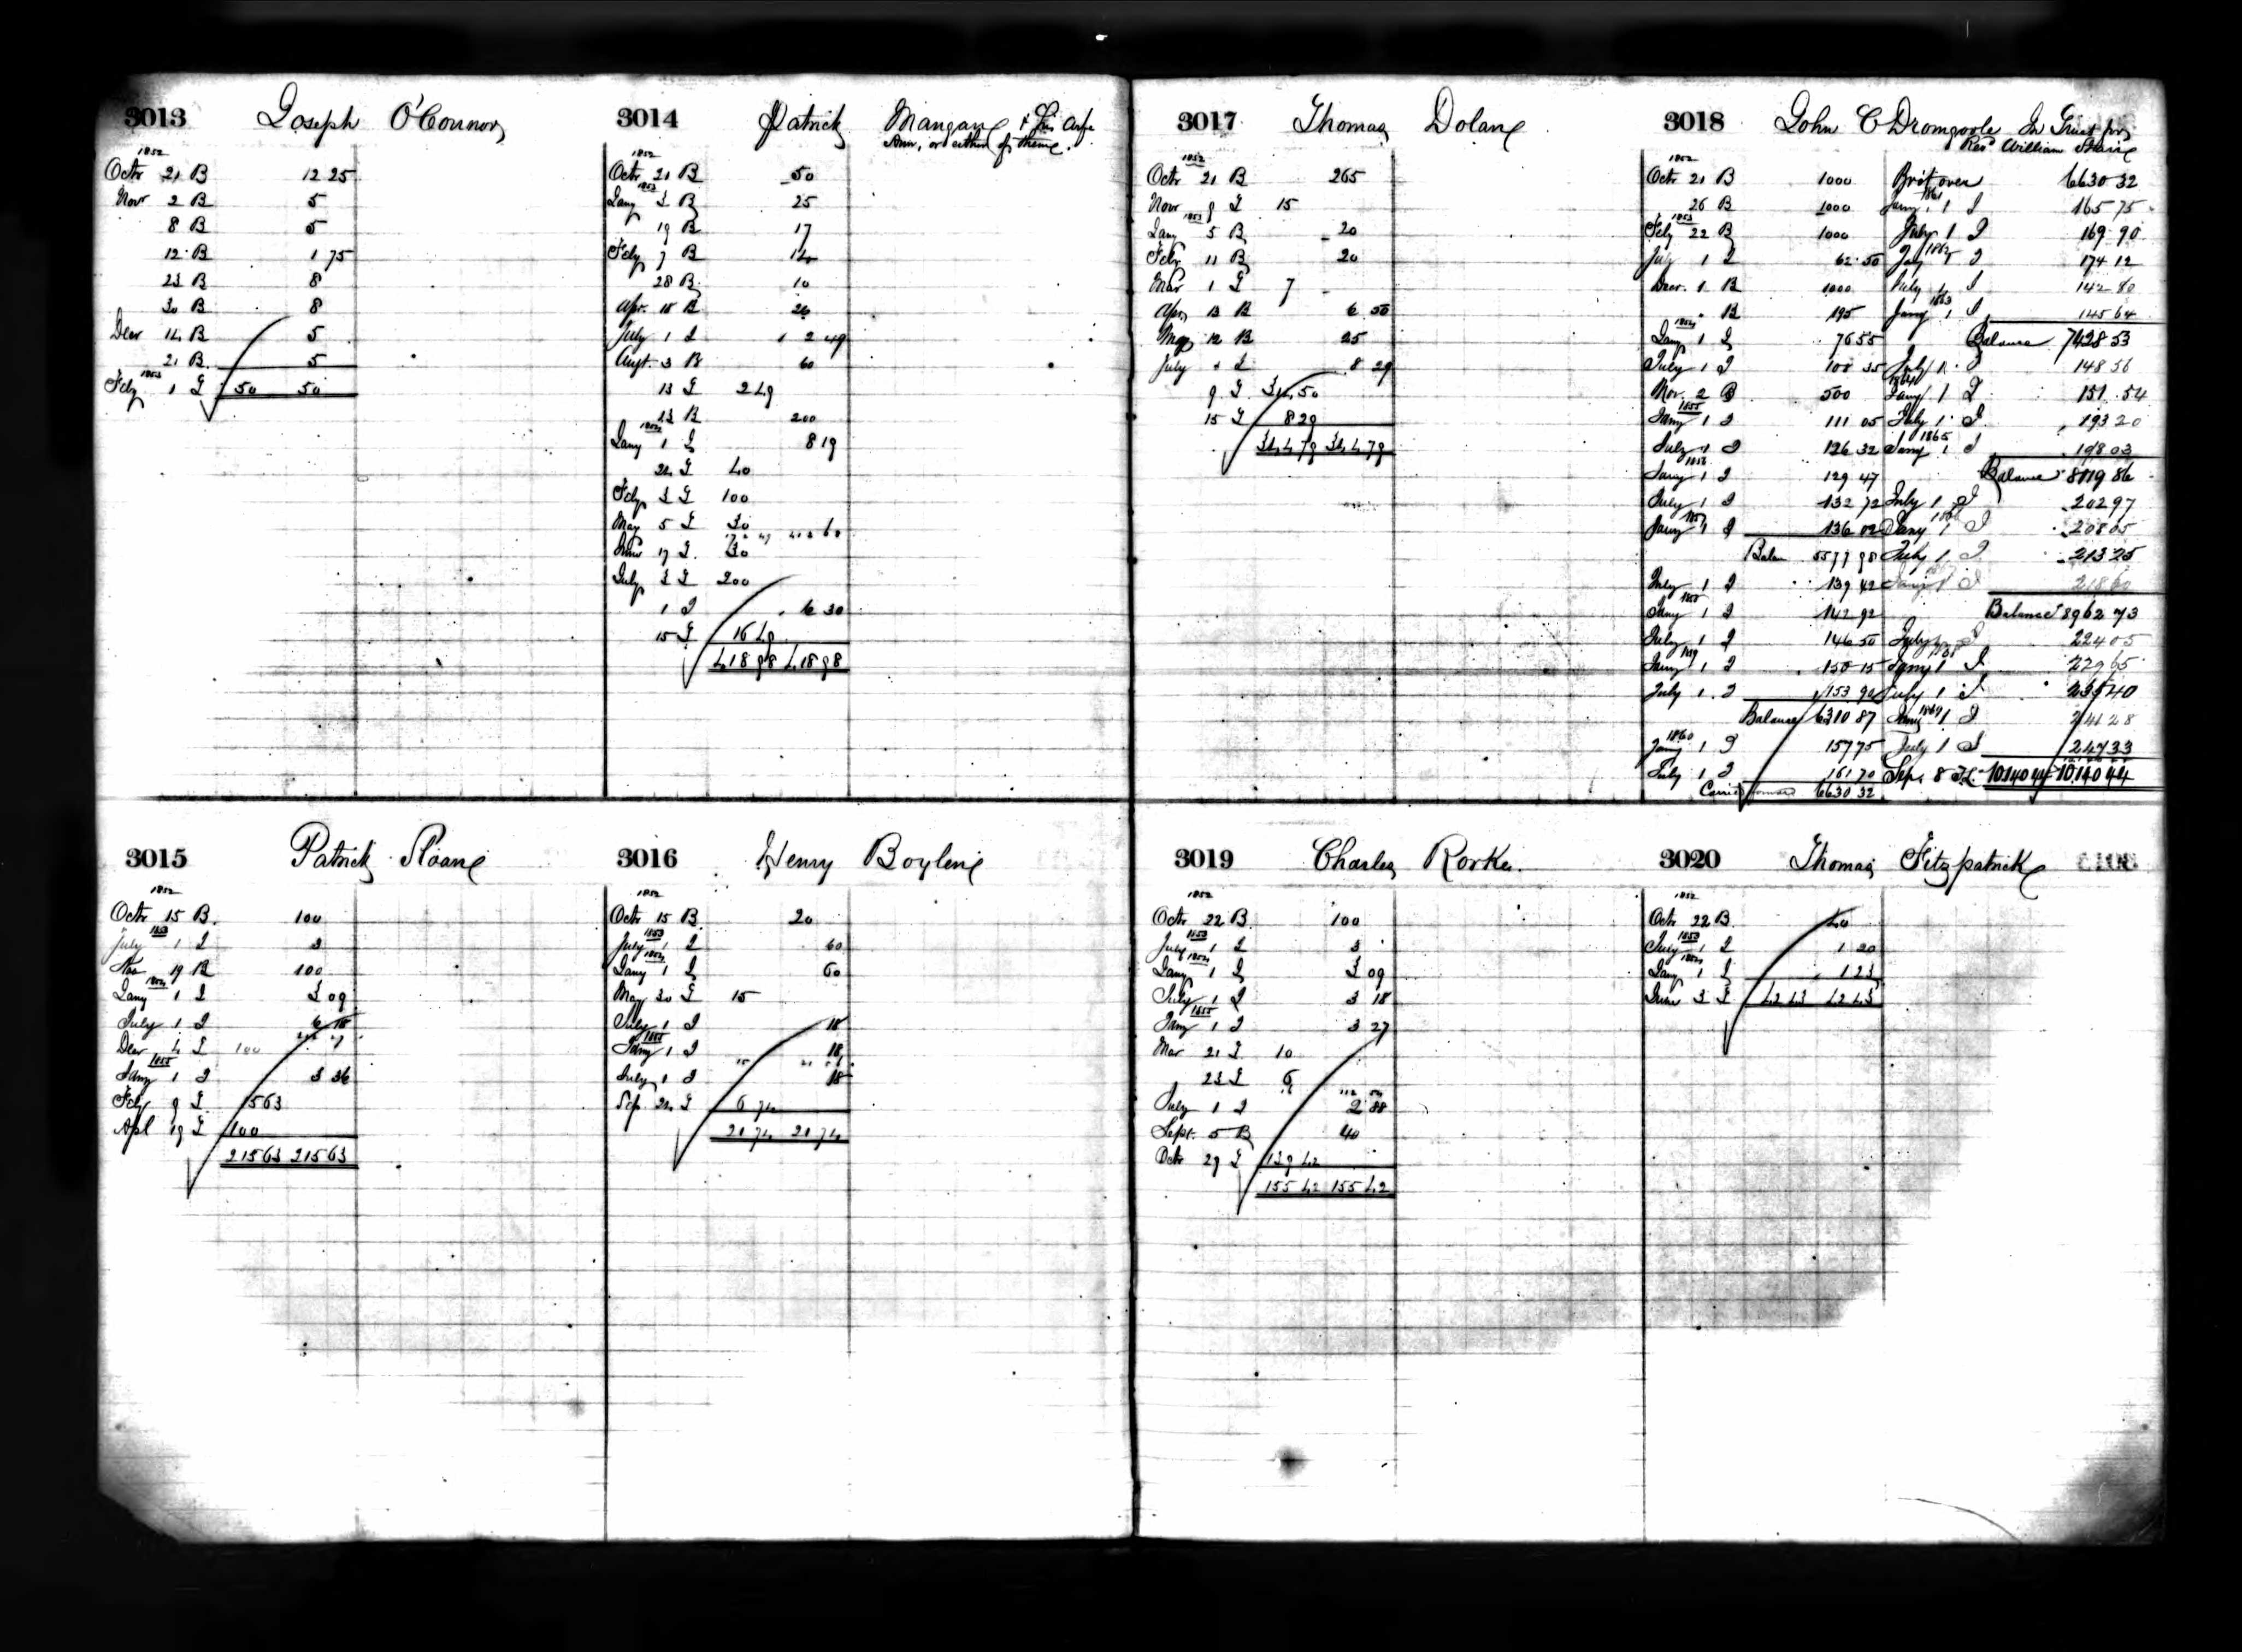 3013 Joseph O'Connor
1852
Octr 21 B 12 25
Novr 2 B 5
8 B 5
12 B 1 75
23 B 8
30 B 8
Decr 14 B 5
21 B 5
1853
Feby 1 T 50 50
3014 Patrick Mangan & his wife
Ann, or either of them.
1852
Octr 21 B 50
1853
Jany 3 B 25
19 B 17
Feby 7 B 14
28 B 10
Apr. 18 B 26
July 1 I 2 49
Augt. 3 B 60
13 T 2 49
23 B 200
1854
Jany 1 I 8 19
24 T 40
Feby 3 T 100
May 5 T 30
June 17 T 30
July 3 T 200
1 I 6 30
15 T 16 49
418 98 418 98
3015 Patrick Sloane
1852
Octr 15 B 100
1853
July 1 I 3
Nov 19 B 100
1854
Jany 1 I 3 09
July 1 I 6 18
Decr 4 T 100
1855
Jany 1 I 3 36
Feby 9 T 15 63
Apl 19 T 100
215 63 215 63
3016 Henry Boylen
1852
Octr 15 B 20
1853
July 1 I 60
1854
Jany 1 I 60
May 30 T 15
July 1 I 18
1855
Jany 1 I 18
July 1 I 18
Sep. 24 T 6 74
21 74 21 74
3017 Thomas Dolan
1852
Octr 21 B 265
Novr 9 T 15
1853
Jany 5 B 20
Feby 11 B 20
Mar 1 T 7
Apr 13 B 6 50
May 12 B 25
July 1 I 8 29
9 T 314 50
15 T 8 29
344 79 344 79
3018 John C Dromgoole In Trust for
Revd William
1852
Octr 21 B 1000
26 B 1000
1853
Feby 22 B 1000
July 1 I 62 50
Decr. 1 B 1000
B 195
1854
Jany 1 I 76 55
July 1 I 100 35
Nov. 2 B 500
1855
Jany 1 I 111 05
July 1 I 126 32
1856
Jany 1 I 129 47
July 1 I 132 72
1857
Jany 1 I 136 02
Balan 5579 98
July 1 I 139 42
1858
Jany 1 I 142 92
July 1 I 146 50
1859
Jany 1 I 150 15
July 1 I 153 90
Balance 6310 87
1860
Jany 1 I 157 75
July 1 I 161 70
Carried forward 6630 32
Brot over 6630 32
1861
Jany 1 I 165 75
July 1 I 169 90
1862
Jay 1 I 174 12
July 1 I 142 80
1863
Jany 1 I 145 64
Balance 7428 53
July 1 I 148 56
1864
Jany 1 I 151 54
July 1 I 193 20
1865
Jany 1 I 198 03
Balance 8119 86
July 1 I 202 97
1866
Jany 1 I 208 05
July 1 I 213 25
1867
Jany 1 I 218 60
Balance 8962 73
July 1 I 224 05
1868
Jany 1 I 229 65
July 1 I 235 40
1869
Jany 1 I 241 28
July 1 I 247 33
Sep. 8 T 10140 44 10140 44
3019 Charles Rorke
1852
Octr 22 B 100
1853
July 1 I 3
1854
Jany 1 I 3 09
July 1 I 3 18
1855
Jany 1 I 3 27
Mar 21 T 10
23 T 6
July 1 I 2 88
Sept. 5 B 40
Octr 29 T 139 42
155 42 155 42
3020 Thomas Fitzpatrick
1852
Octr 22 B 40
1853
July 1 I 1 20
1854
Jany 1 I 1 23
June 3 T 42 43 42 43